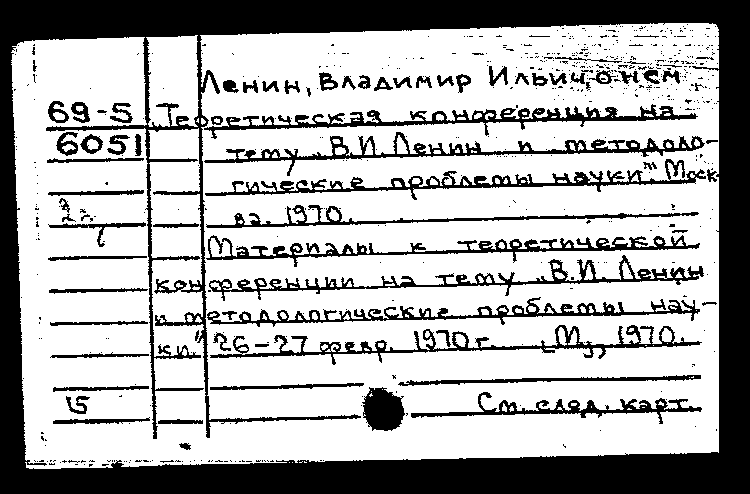 Ленин, Владимир Ильич, о нем
69-5 „Теоретическая конференция на
6051 тему „В.И. Ленин и методоло-
гические проблемы науки"". Моск-
ва. 1970.
Материалы к теоретической
конференции на тему „В.И. Ленин
и методологические проблемы нау-
ки." 26-27 февр. 1970 г. [М], 1970.
15 См. след. карт.